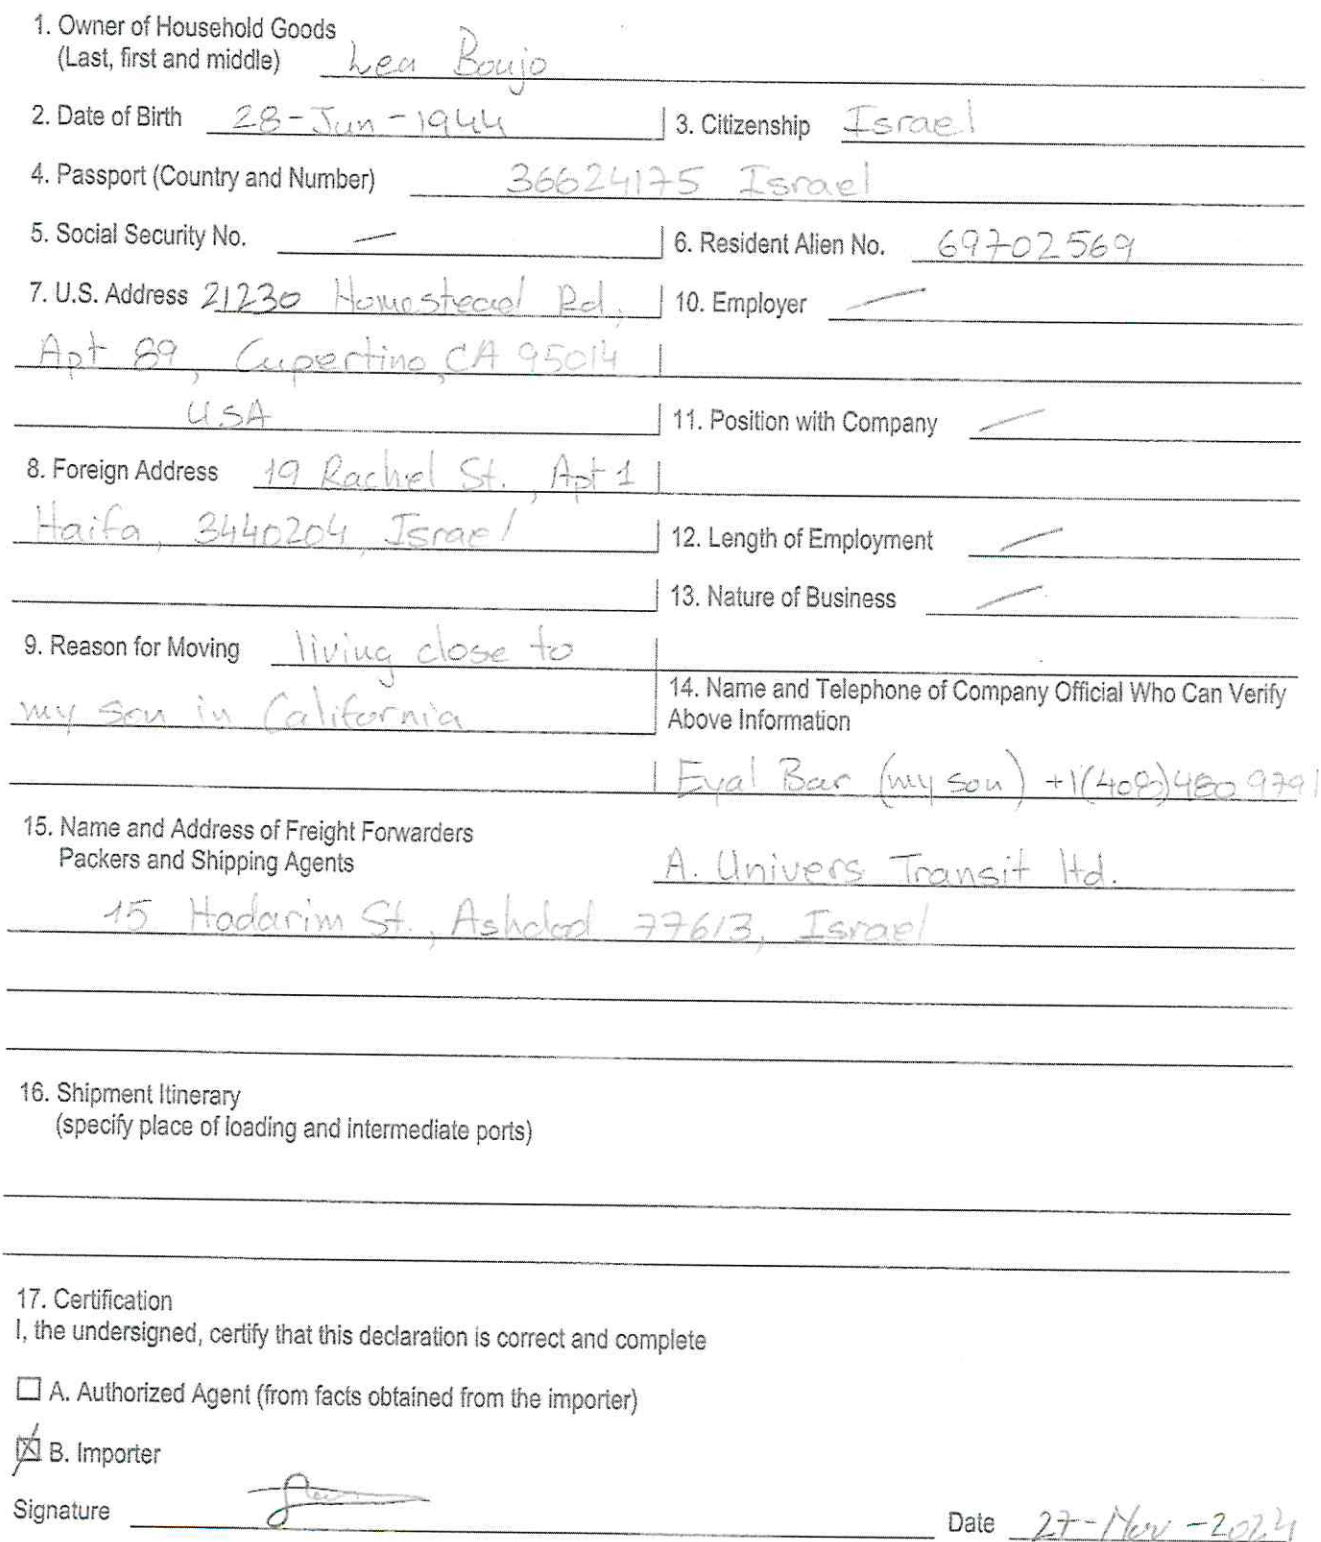 1. Owner of Household Goods
(Last, first and middle) Lea Boujo
2. Date of Birth 28-Jun-1944 3. Citizenship Israel
4. Passport (Country and Number) 36624175 Israel
5. Social Security No. — 6. Resident Alien No. 69702569
7. U.S. Address 21230 Homestead Rd, 10. Employer —
Apt 89, Cupertino, CA 95014
USA 11. Position with Company —
8. Foreign Address 19 Rachel St., Apt 1
Haifa, 3440204, Israel 12. Length of Employment —
13. Nature of Business —
9. Reason for Moving living close to
14. Name and Telephone of Company Official Who Can Verify
my son in California Above Information
Eyal Bar (my son) +1(408)480 9791
15. Name and Address of Freight Forwarders
Packers and Shipping Agents A. Univers Transit ltd.
15 Hadarim St., Ashdod 77613, Israel
16. Shipment Itinerary
(specify place of loading and intermediate ports)
17. Certification
I, the undersigned, certify that this declaration is correct and complete
A. Authorized Agent (from facts obtained from the importer)
B. Importer
Signature Date 27-Nov-2024